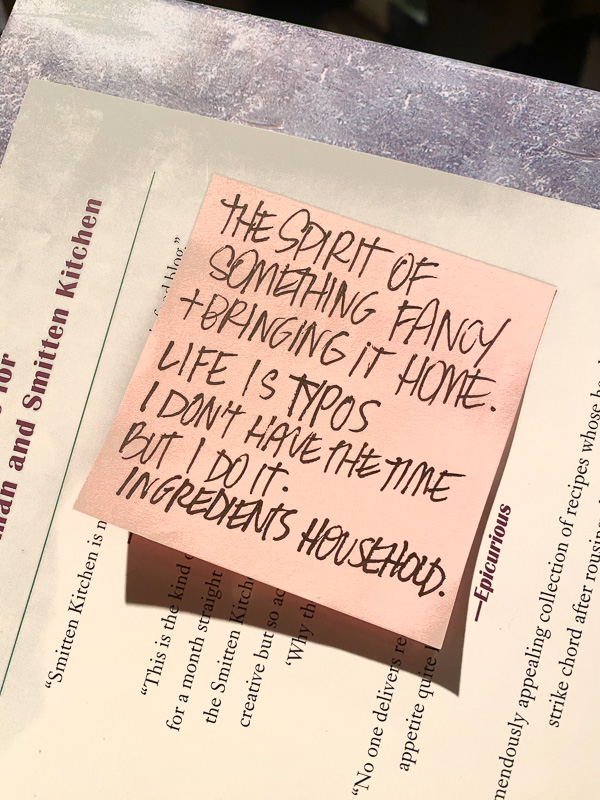 THE SPIRIT OF
SOMETHING FANCY
+ BRINGING IT HOME.
LIFE IS TYPOS
I DON'T HAVE THE TIME
BUT I DO IT.
INGREDIENTS HOUSEHOLD.
for
and Smitten Kitchen
blog."
"Smitten Kitchen is
"This is the kind
for a month straight
the Smitten Kitch
creative but so
"Why th
—Epicurious
"No one delivers re
appetite quite
mendously appealing collection of recipes whose
strike chord after